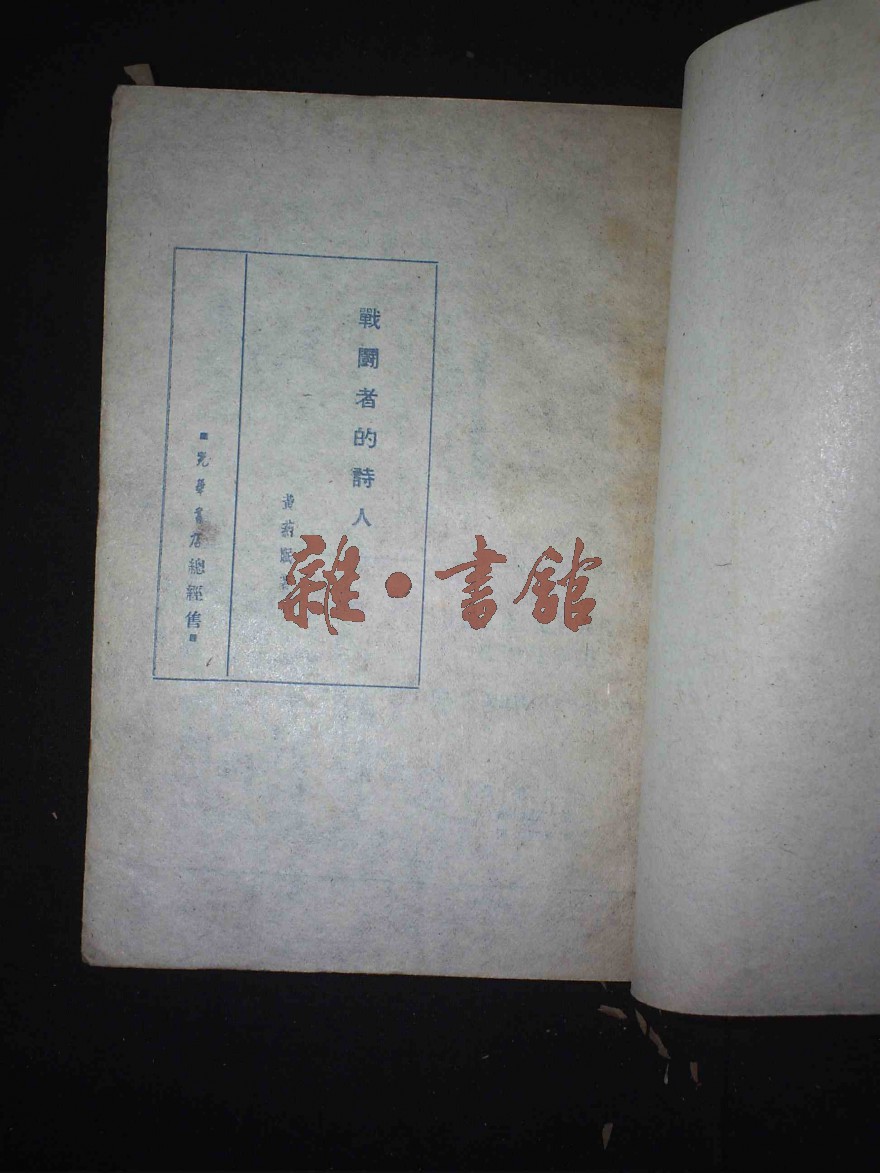 戰鬪者的詩人
黃葯眠著
光華書店總經售
雜·書館